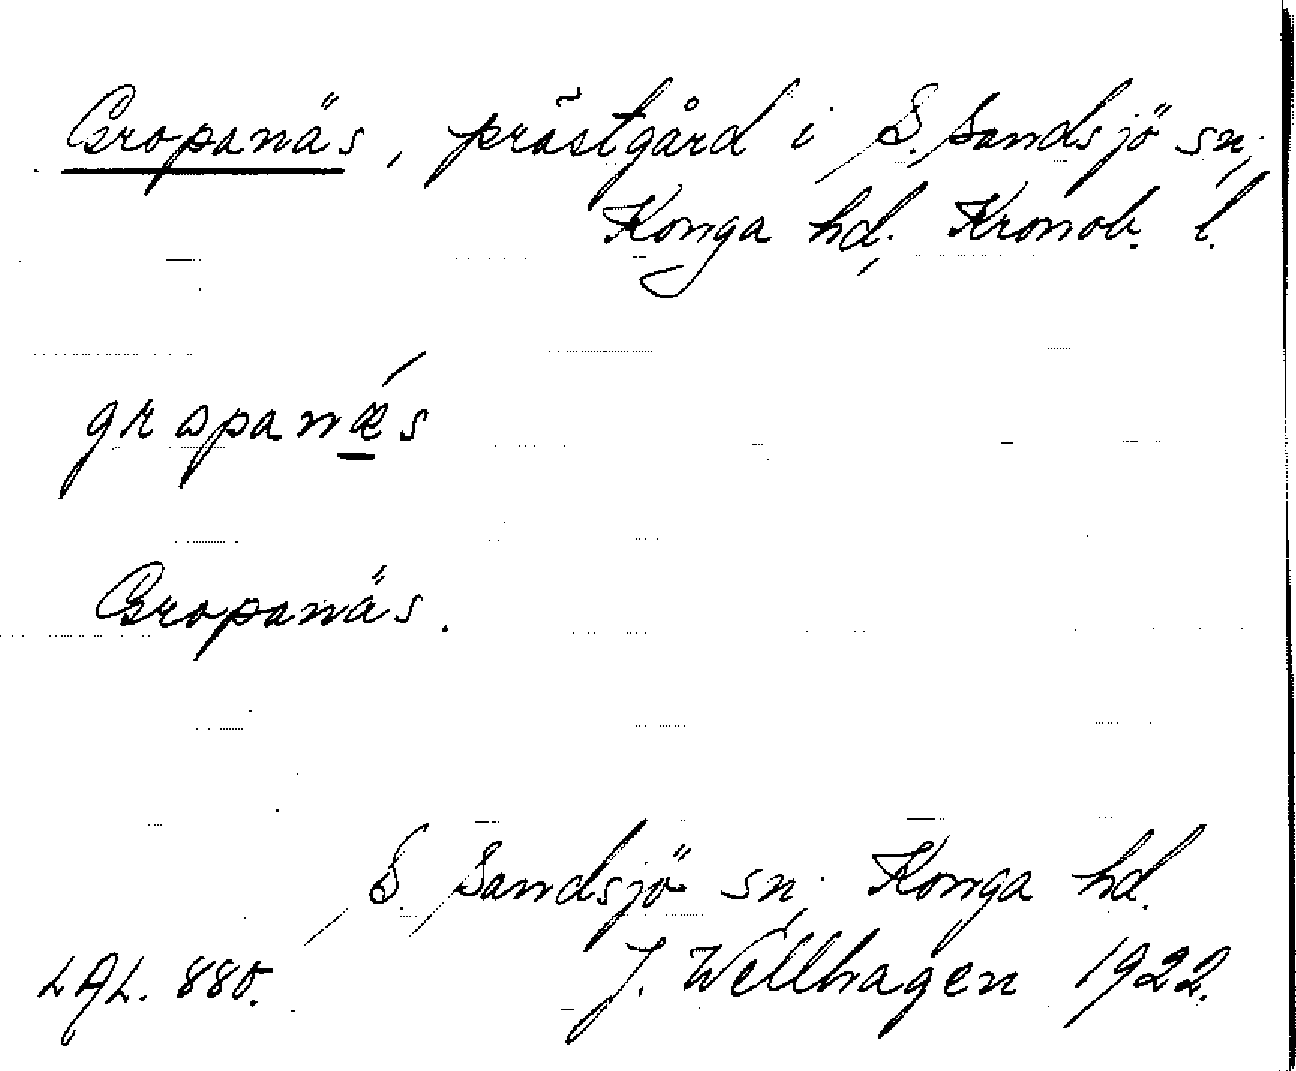 Gropanäs, prästgård i S. Sandsjö sn,
Konga hd, Kronob. l.
gropanæs
Gropanäs.
S. Sandsjö sn, Konga hd.
LAL. 880. J. Wellhagen 1922.